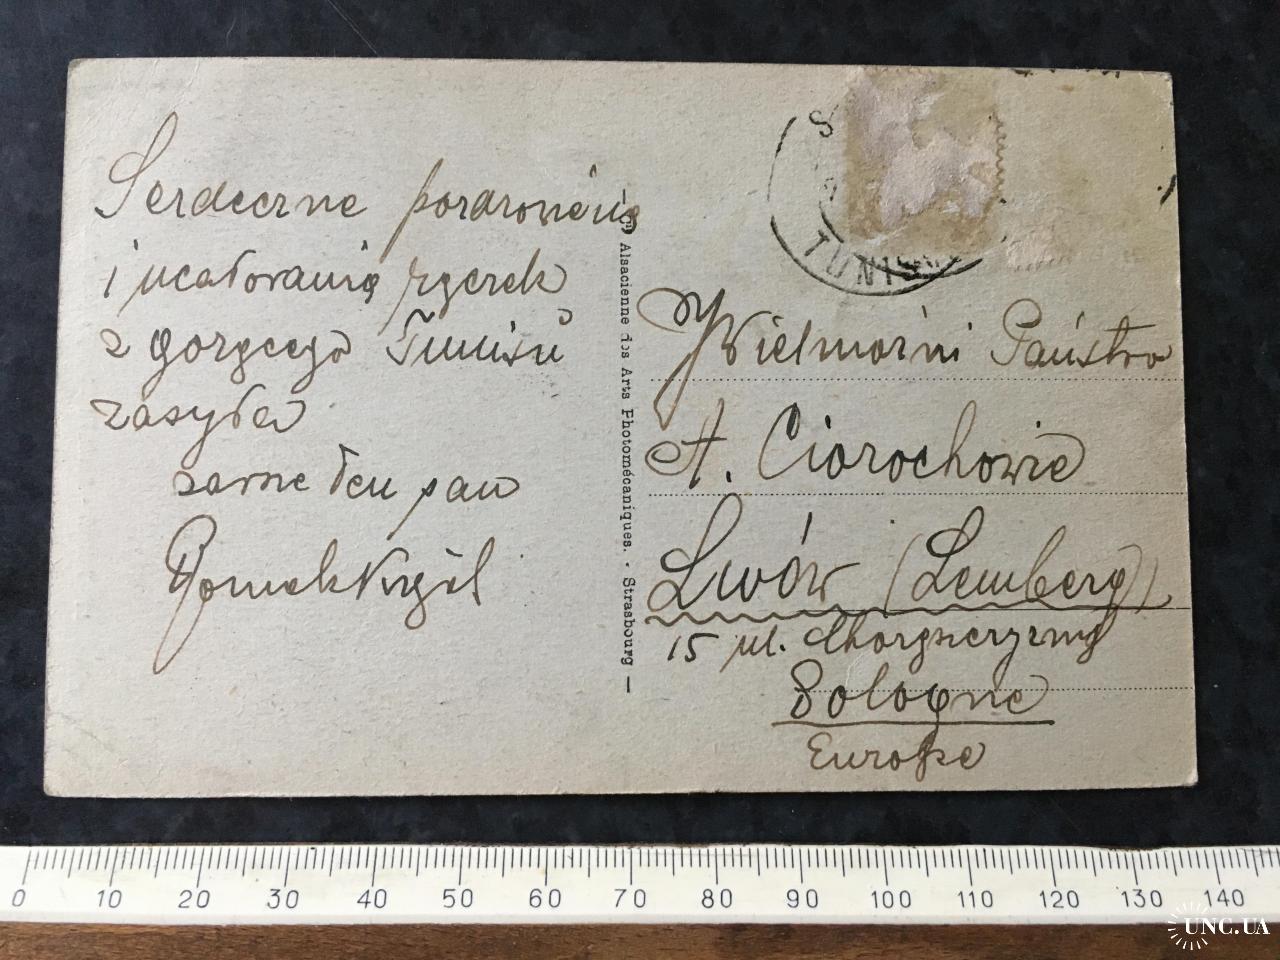 Serdeczne pozdrowienia
i ucałowania rączek
z gorącego Tunisu
zasyła
pan
TUNIS
Cie Alsacienne des Arts Photomécaniques. - Strasbourg
Wielmożni Państwo
A. Ciorochowie
Lwów (Lemberg)
15 ul. Chorąszczyzny
Pologne
Europe
0 10 20 30 40 50 60 70 80 90 100 110 120 130 140
UNC.UA